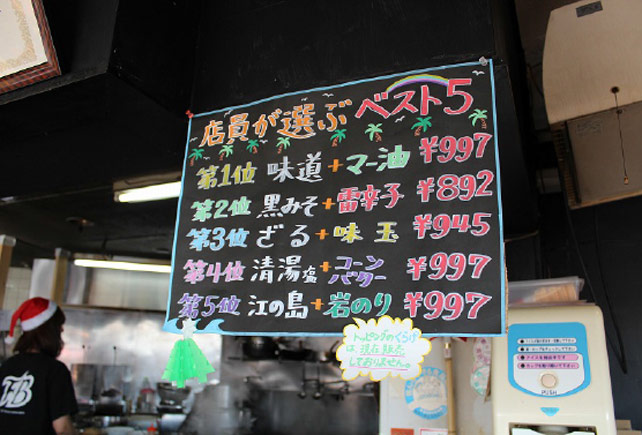 店員が選ぶベスト5
第1位 味道+マー油 ¥997
第2位 黒みそ+雷辛子 ¥892
第3位 ざる+味玉 ¥945
第4位 清湯塩+コーンバター ¥997
第5位 江の島+岩のり ¥997
トッピングのくらげ
は、現在販売し
ておりません。
PUSH
TB